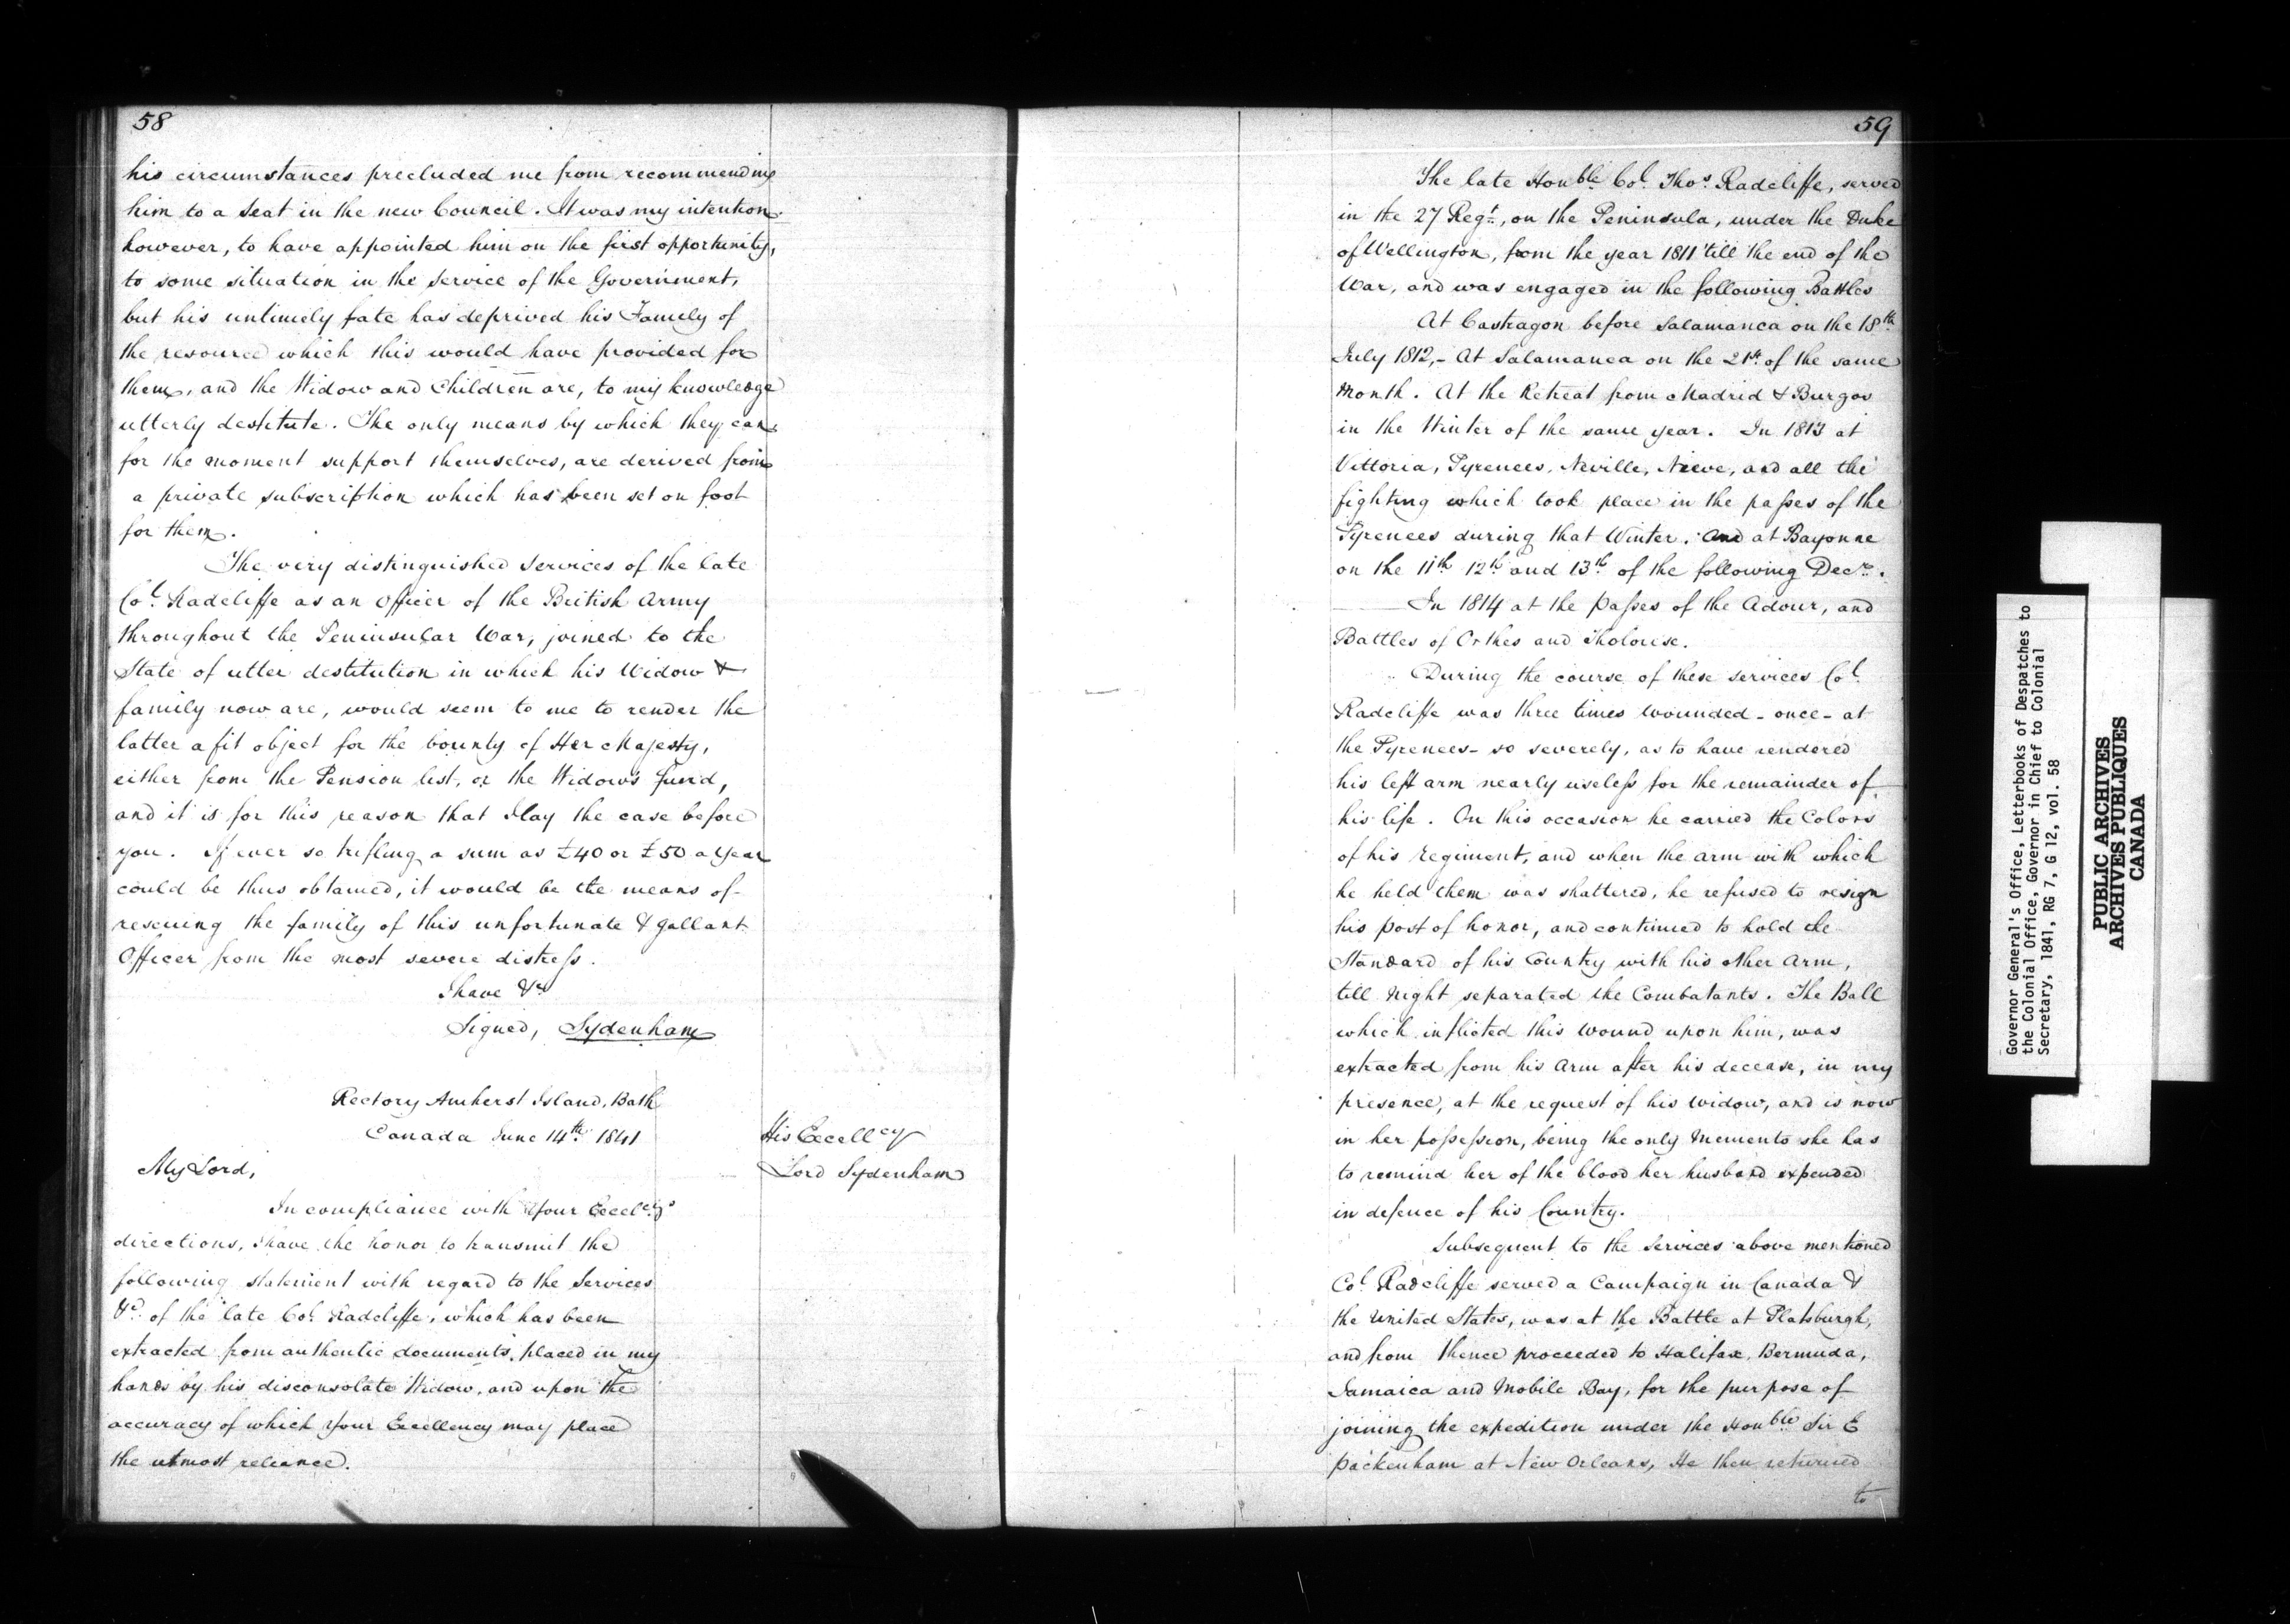 58
his circumstances precluded me from recommending
him to a Seat in the new Council. It was my intention
however, to have appointed him on the first opportunity,
to some situation in the Service of the Government,
but his untimely fate has deprived his Family of
the resource which this would have provided for
them, and the Widow and Children are, to my knowledge
utterly destitute. The only means by which they can
for the moment support themselves, are derived from
a private subscription which has been set on foot
for them.
The very distinguished services of the late
Col. Radcliffe as an Officer of the British Army
throughout the Peninsular War, joined to the
State of utter destitution in which his Widow &
family now are, would seem to me to render the
latter a fit object for the bounty of Her Majesty,
either from the Pension list, or the Widows fund,
and it is for this reason that I lay the case before
you. If ever so trifling a sum as £40 or £50 a Year
could be thus obtained, it would be the means of
rescuing the family of this unfortunate & gallant
Officer from the most severe distress.
I have &c
Signed, Sydenham
Rectory Amherst Island, Bath
Canada June 14th 1841
His Excellcy
Lord Sydenham
My Lord,
In compliance with Your Excelcy's
directions, I have the honor to transmit the
following statement with regard to the Services
&c. of the late Col. Radcliffe, which has been
extracted from authentic documents, placed in my
hands by his disconsolate Widow, and upon the
accuracy of which Your Excellency may place
the utmost reliance.
59
The late Honble Col. Thos. Radcliffe, served
in the 27 Regt., on the Peninsula, under the Duke
of Wellington, from the year 1811 'till the end of the
War, and was engaged in the following Battles
At Castragon before Salamanca on the 18th
July 1812,- At Salamanca on the 21st of the same
Month. At the Retreat from Madrid & Burgos
in the Winter of the same year. In 1813 at
Vittoria, Pyrenees, Neville, Nieve, and all the
fighting which took place in the passes of the
Pyrenees during that Winter. And at Bayonne
on the 11th 12th and 13th of the following Decr.
In 1814 at the Passes of the Adour, and
Battles of Orthes and Tholouse.
During the course of these services Col.
Radcliffe was three times wounded - once - at
the Pyrenees - so severely, as to have rendered
his left arm nearly useless for the remainder of
his life. On this occasion he carried the Colors
of his Regiment, and when the arm with which
he held them was shattered, he refused to resign
his post of honor, and continued to hold the
Standard of his Country with his other Arm,
till Night separated the Combatants. The Ball
which inflicted this wound upon him, was
extracted from his Arm after his decease, in my
presence, at the request of his widow, and is now
in her possession, being the only Memento she has
to remind her of the blood her husband expended
in defence of his Country.
Subsequent to the Services above mentioned
Col. Radcliffe served a Campaign in Canada &
the United States, was at the Battle at Platsburgh,
and from thence proceeded to Halifax, Bermuda,
Jamaica and Mobile Bay, for the purpose of
joining the expedition under the Honble Sir E
Packenham at New Orleans, He then returned
to
Governor General's Office, Letterbooks of Despatches to
the Colonial Office, Governor in Chief to Colonial
Secretary, 1841, RG 7, G 12, vol. 58
PUBLIC ARCHIVES
ARCHIVES PUBLIQUES
CANADA